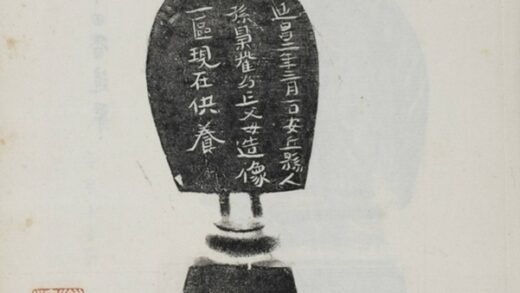 延昌二年三月一日安丘縣人
孫為亡父母造像
一區現在供養